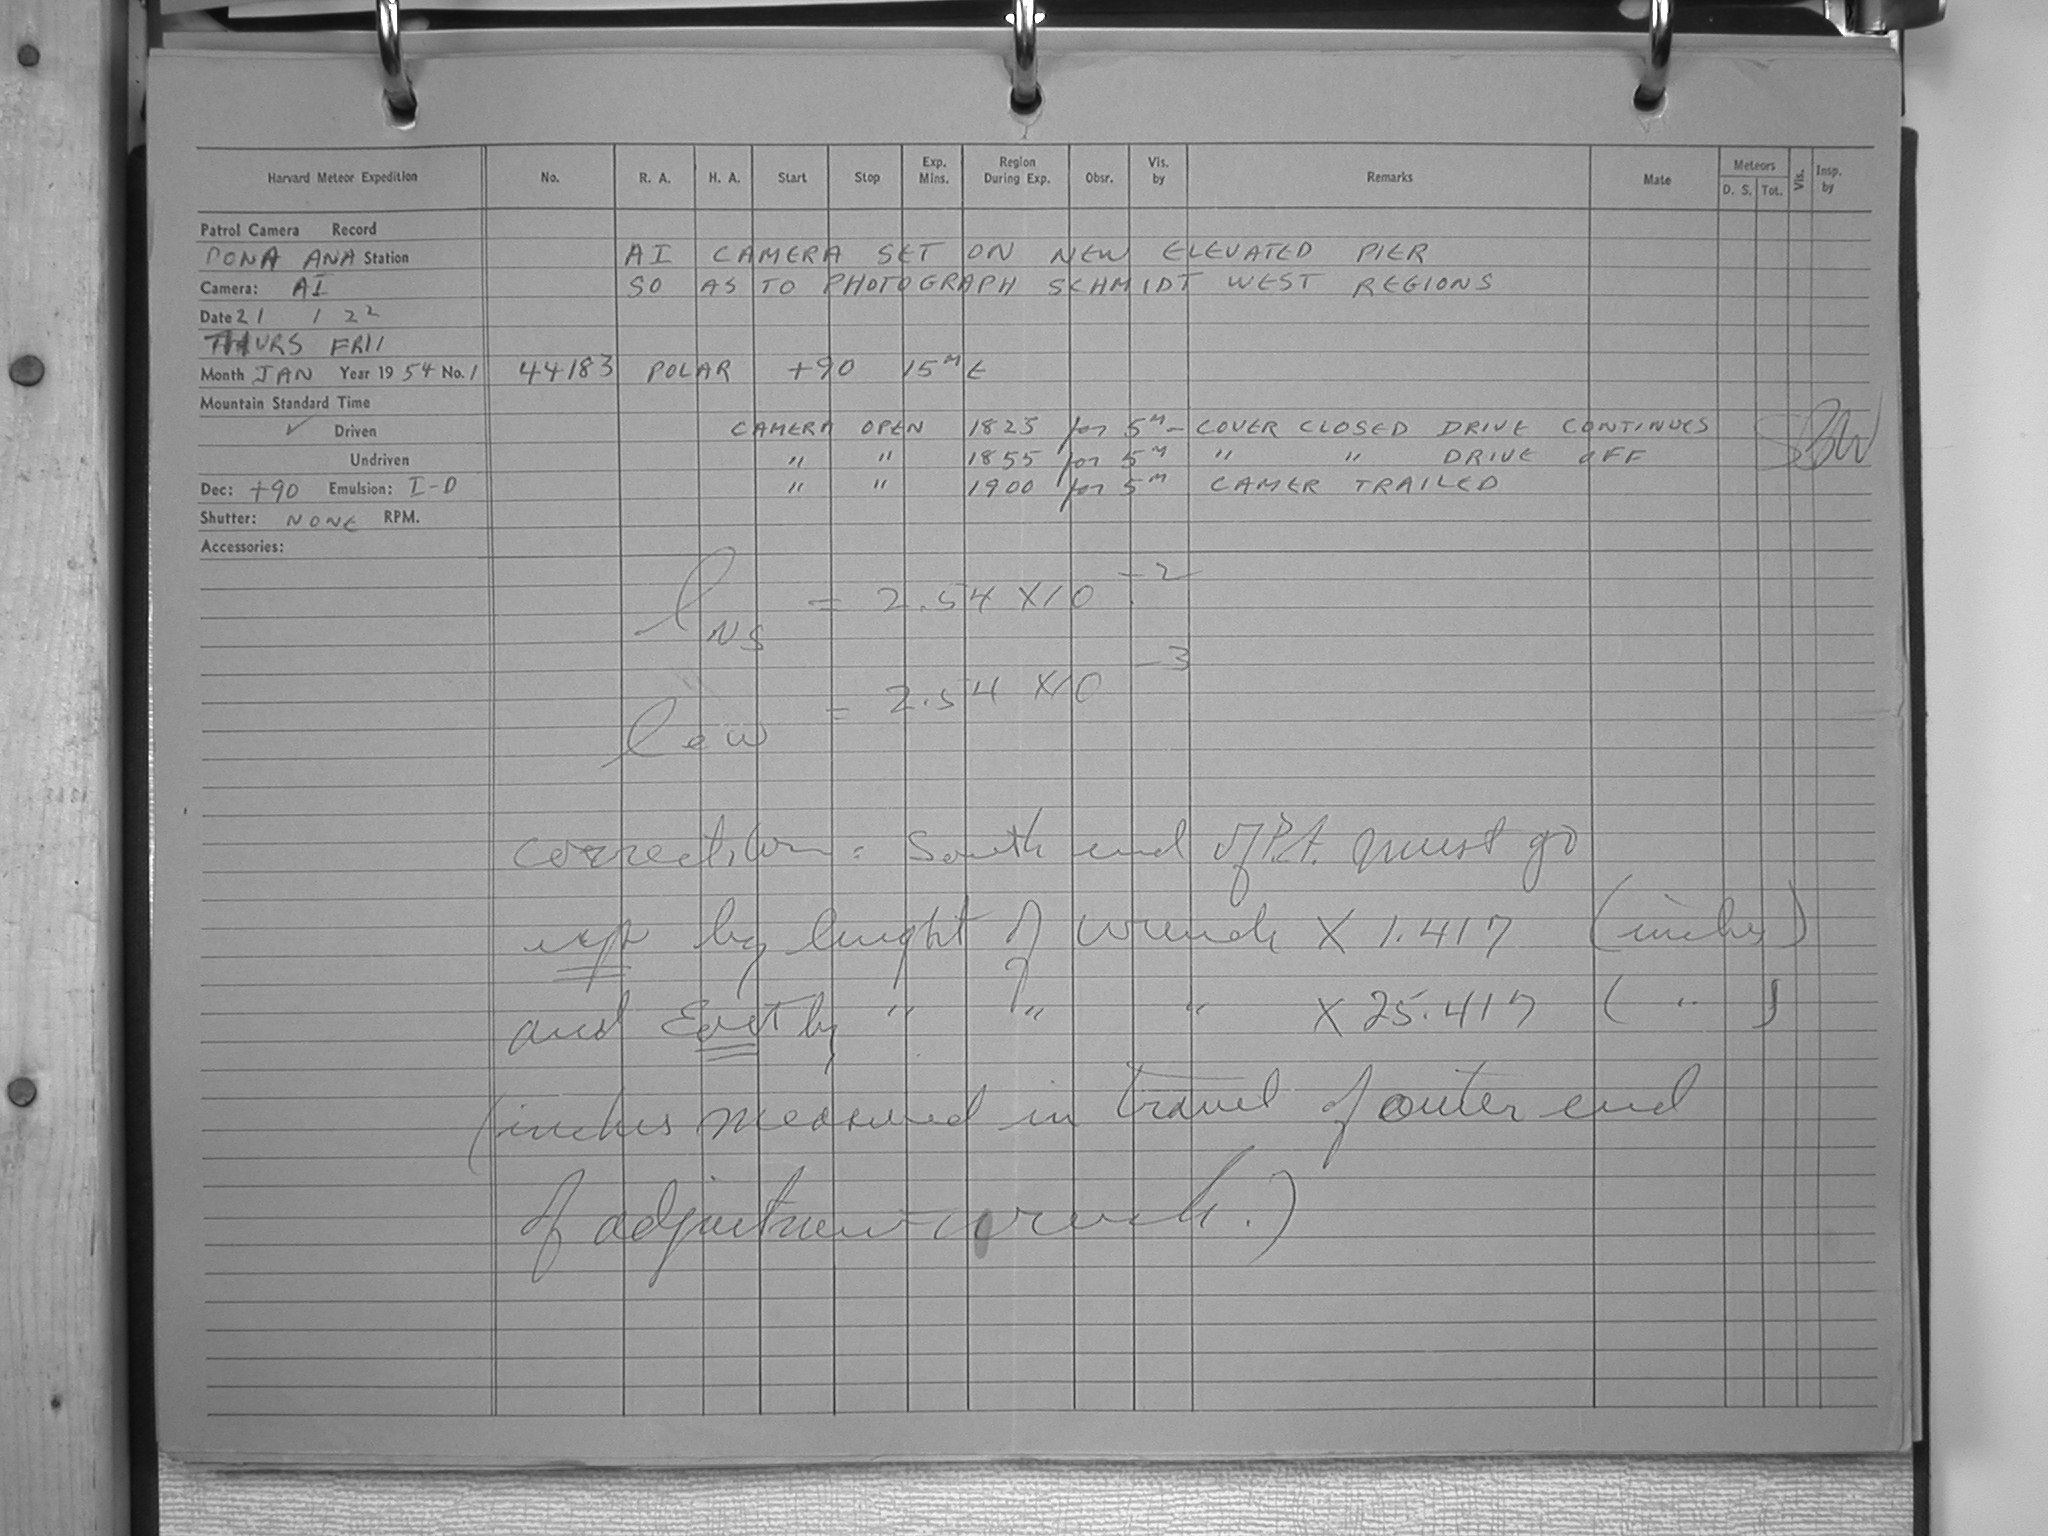 Harvard Meteor Expedition No. R. A. H. A. Start Stop Exp. Mins. Region During Exp. Obsr. Vis. by Remarks Mate Meteors D. S. Tot. Vis. Insp. by
Patrol Camera Record
DONA ANA Station AI CAMERA SET ON NEW ELEVATED PIER
Camera: AI SO AS TO PHOTOGRAPH SCHMIDT WEST REGIONS
Date 21 / 22
THURS FRI
Month JAN Year 19 54 No. 1 44183 POLAR +90 15ᴹ E
Mountain Standard Time
✓ Driven CAMERA OPEN 1825 for 5ᴹ - COVER CLOSED DRIVE CONTINUES
Undriven " " 1855 for 5ᴹ " " DRIVE OFF
Dec: +90 Emulsion: I-D " " 1900 for 5ᴹ CAMER TRAILED
Shutter: NONE RPM.
Accessories:
l NS = 2.54 X10 -2
l ew = 2.54 X10 -3
correction: South end of P.A. must go
up by lenght of wrench X 1.417 (inches)
and East by " " " X 25.417 ( " )
(inches measured in travel of outer end
of adjustment wrench.)